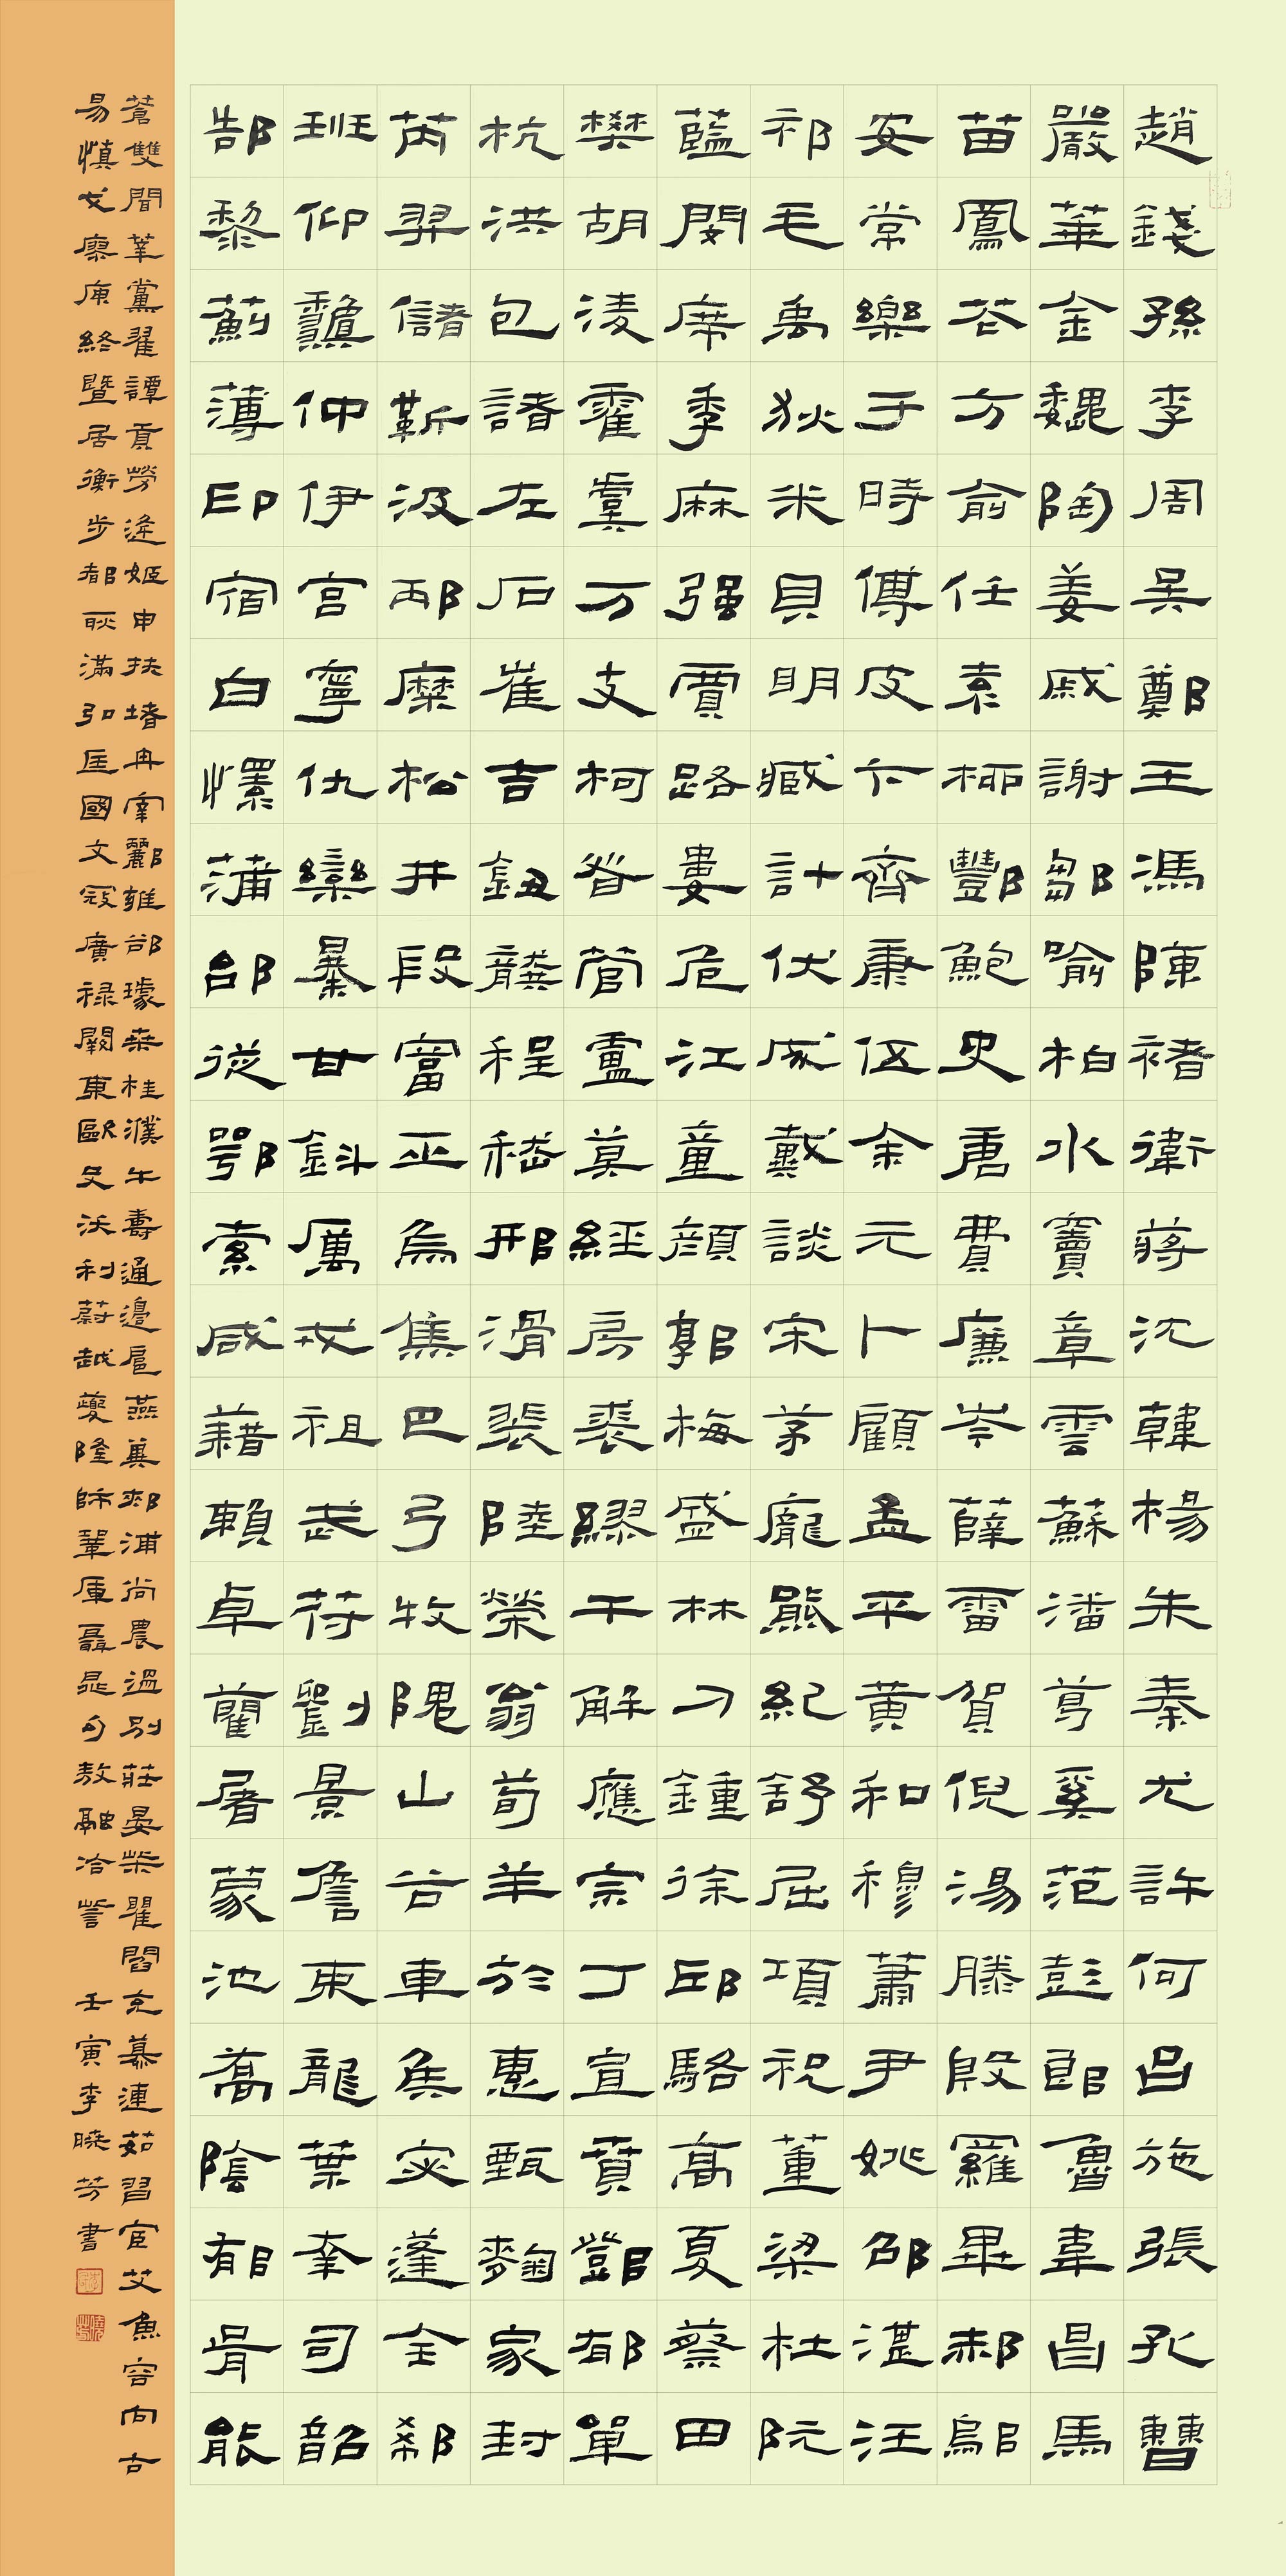 趙錢孫李周吳鄭王馮陳褚衛蔣沈韓楊朱秦尤許何呂施張孔曹
嚴華金魏陶姜戚謝鄒喻柏水竇章雲蘇潘葛奚范彭郎魯韋昌馬
苗鳳花方俞任袁柳酆鮑史唐費廉岑薛雷賀倪湯滕殷羅畢郝鄔
安常樂于時傅皮卞齊康伍余元卜顧孟平黃和穆蕭尹姚邵湛汪
祁毛禹狄米貝明臧計伏成戴談宋茅龐熊紀舒屈項祝董梁杜阮
藍閔席季麻強賈路婁危江童顏郭梅盛林刁鍾徐邱駱高夏蔡田
樊胡淩霍虞万支柯昝管盧莫經房裘繆干解應宗丁宣賁鄧郁單
杭洪包諸左石崔吉鈕龔程嵇邢滑裴陸榮翁荀羊於惠甄麴家封
芮羿儲靳汲邴糜松井段富巫烏焦巴弓牧隗山谷車侯宓蓬全郗
班仰龝仲伊宮寧仇欒暴甘鈄厲戎祖武符劉景詹束龍葉幸司韶
郜黎薊薄印宿白懷蒲邰從鄂索咸藉賴卓藺屠蒙池喬陰郁胥能
蒼雙聞莘黨翟譚貢勞逄姬申扶堵冉宰酈雍郤璩桑桂濮牛壽通邊扈燕冀郟浦尚農溫別莊晏柴瞿閻充慕連茹習宦艾魚容向古
易慎戈廖庾終暨居衡步都耿滿弘匡國文寇廣祿闕東歐殳沃利蔚越夔隆師鞏厙聶晁句敖融冷訾 壬寅李曉芳書